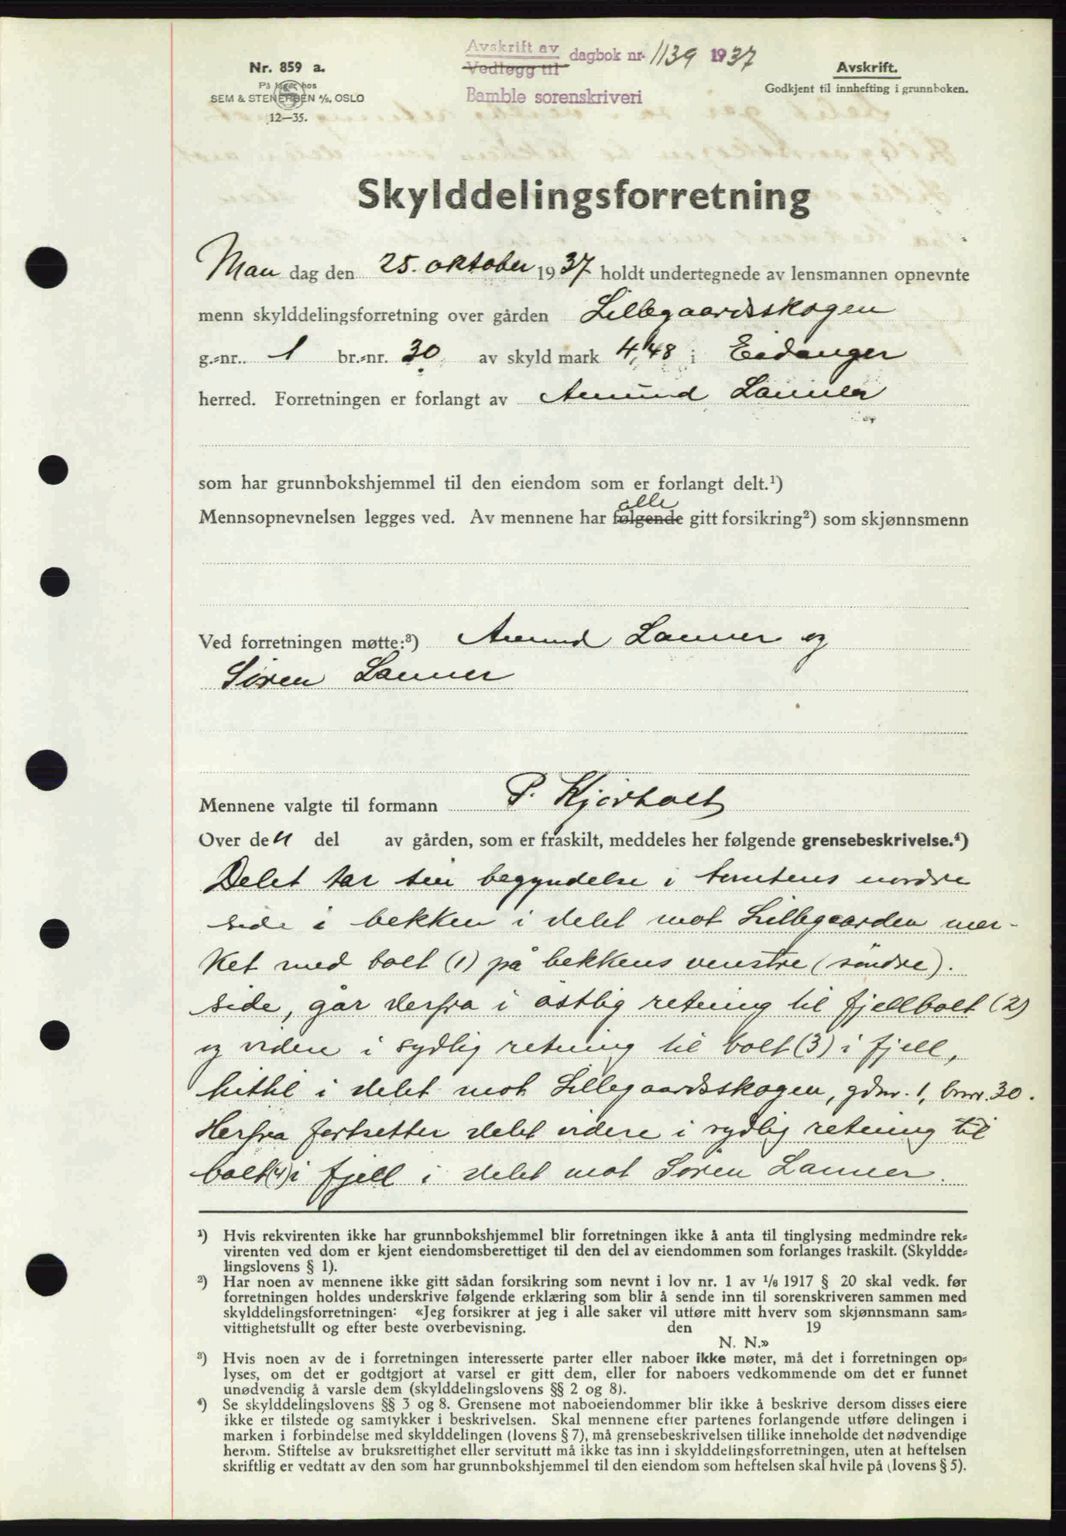 Nr. 859 a.
På lager hos
SEM & STENERSEN A/S, OSLO
12—35.
Avskrift av
Vedlegg til
dagbok nr. 1139 1937
Bamble sorenskriveri
Avskrift.
Godkjent til innhefting i grunnboken.
Skylddelingsforretning
Man dag den 25. oktober 1937 holdt undertegnede av lensmannen opnevnte
menn skylddelingsforretning over gården Lillegaardsskogen
g.-nr.. 1 br.-nr. 30 av skyld mark 4,48 i Eidanger
herred. Forretningen er forlangt av Amund Lanner
som har grunnbokshjemmel til den eiendom som er forlangt delt.¹)
alle
Mennsopnevnelsen legges ved. Av mennene har følgende gitt forsikring²) som skjønnsmenn
Ved forretningen møtte:³) Amund Lanner og
Søren Lanner
Mennene valgte til formann P. Kjørholt
Over den del av gården, som er fraskilt, meddeles her følgende grensebeskrivelse.⁴)
Delet tar sin begyndelse i tomtens nordre
side i bekken i delet mot Lillegaarden mer-
ket med bolt (1) på bekkens venstre (søndre).
side, går derfra i østlig retning til fjellbolt (2)
og videre i sydlig retning til bolt (3) i fjell,
hittil i delet mot Lillegaardsskogen, gdnr. 1, brnr. 30.
Herfra fortsetter delet videre i sydlig retning til
bolt (4) i fjell i delet mot Søren Lanner.
¹) Hvis rekvirenten ikke har grunnbokshjemmel blir forretningen ikke å anta til tinglysing medmindre rek-
virenten ved dom er kjent eiendomsberettiget til den del av eiendommen som forlanges fraskilt. (Skyldde-
lingslovens § 1).
²) Har noen av mennene ikke gitt sådan forsikring som nevnt i lov nr. 1 av 1/6 1917 § 20 skal vedk. før
forretningen holdes underskrive følgende erklæring som blir å sende inn til sorenskriveren sammen med
skylddelingsforretningen: «Jeg forsikrer at jeg i alle saker vil utføre mitt hverv som skjønnsmann sam-
vittighetsfullt og efter beste overbevisning. den 19
N. N.»
³) Hvis noen av de i forretningen interesserte parter eller naboer ikke møter, må det i forretningen op-
lyses, om det er godtgjort at varsel er gitt dem, eller for naboers vedkommende om det er funnet
unødvendig å varsle dem (skylddelingslovens §§ 2 og 8).
⁴) Se skylddelingslovens §§ 3 og 8. Grensene mot naboeiendommer blir ikke å beskrive dersom disses eiere
ikke er tilstede og samtykker i beskrivelsen. Skal mennene efter partenes forlangende utføre delingen i
marken i forbindelse med skylddelingen (lovens § 7), må grensebeskrivelsen tillike inneholde det nødvendige
herom. Stiftelse av bruksrettighet eller servitutt må ikke tas inn i skylddelingsforretningen, uten at heftelsen
skriftlig er vedtatt av den som har grunnbokshjemmel til den eiendom som heftelsen skal hvile på (lovens § 5).